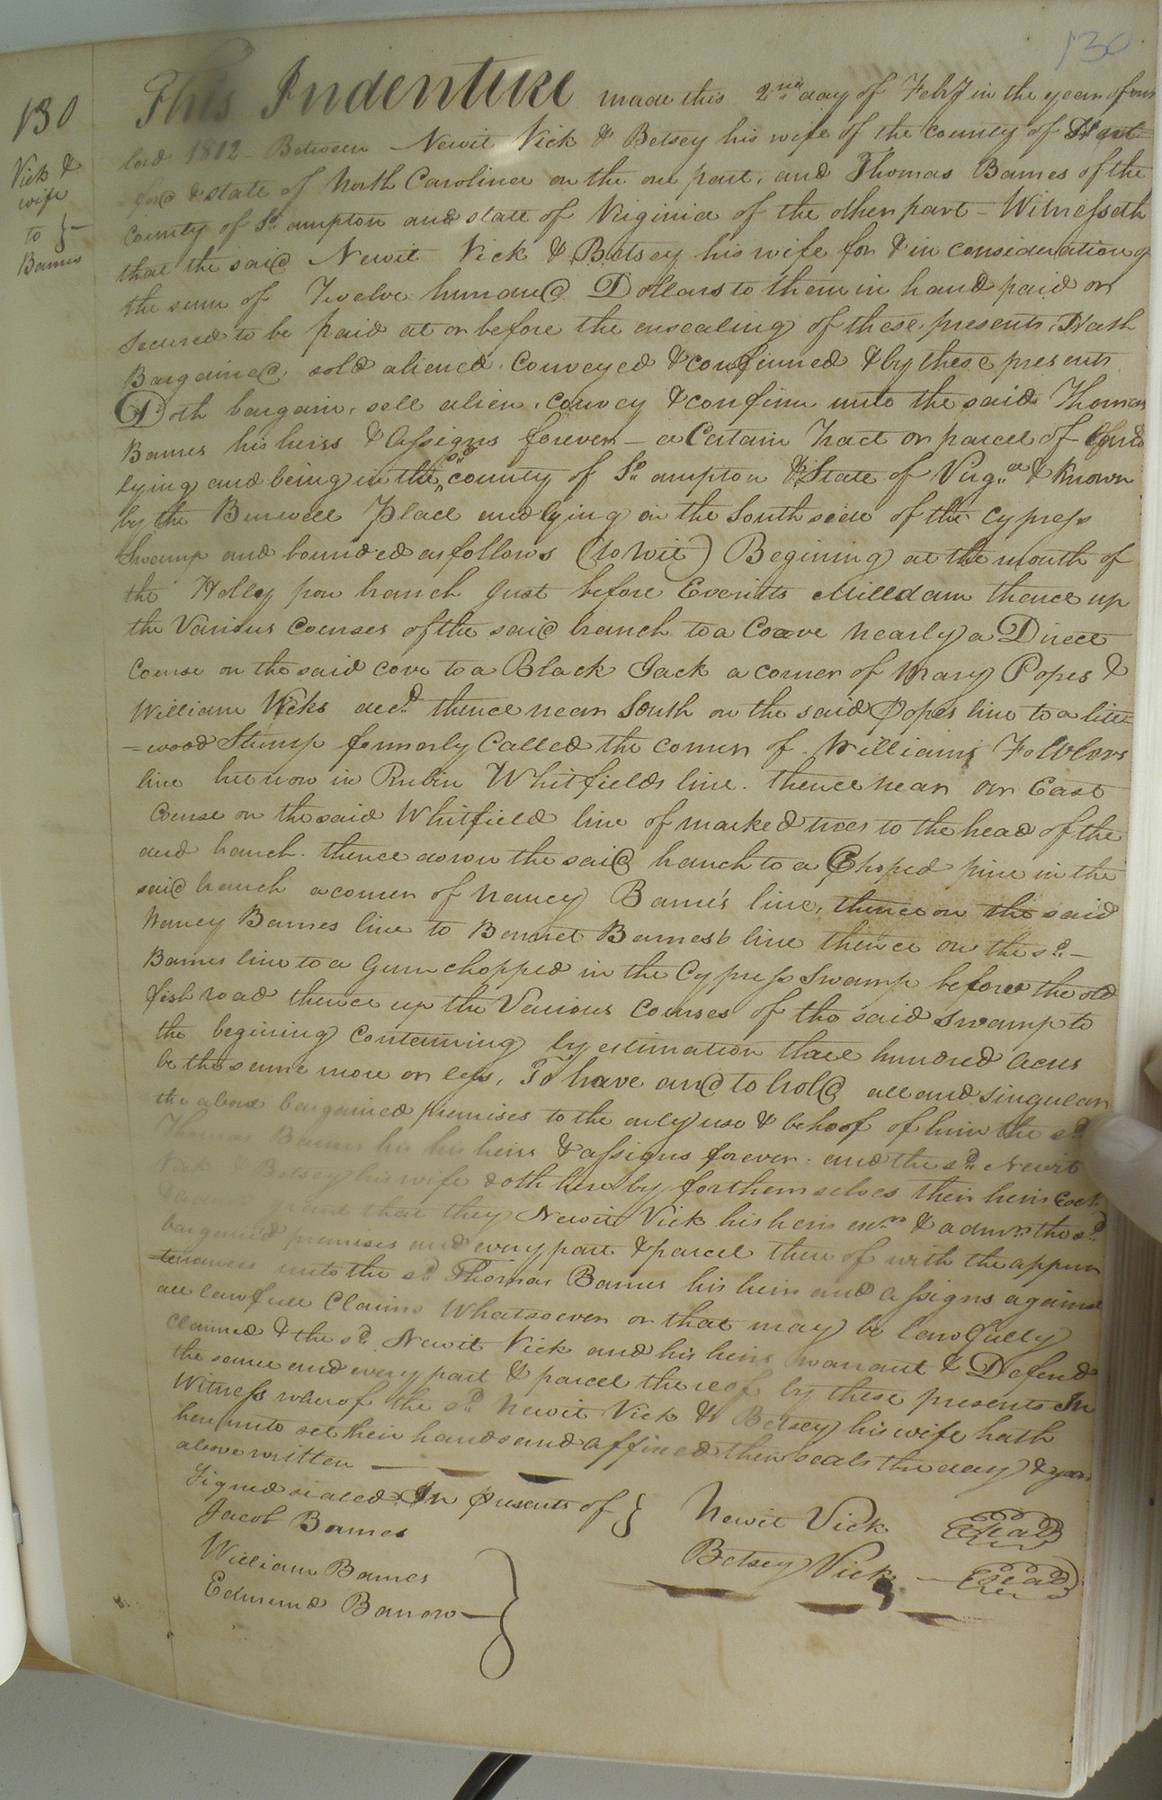 130
130
Vick &
wife
to } —
Barnes
This Indenture made this 2nd day of Feby in the year of our
lord 1812 Between Newit Vick & Betsey his wife of the county of Hart=
ford & state of North Carolina on the one part, and Thomas Barnes of the
County of So. ampton and state of Virginia of the other part – Witnesseth
that the said Newit Vick & Betsey his wife for & in consideration of
the sum of Twelve hundred Dollars to them in hand paid or
secured to be paid at or before the ensealing of these presents, Hath
Bargained, sold aliened, conveyed & confirmed & by these presents
Doth bargain, sell alien, convey & confirm unto the said Thomas
Barnes his heirs & Assigns forever – a Certain Tract or parcel of land
lying and being in the sd. county of So. ampton & State of Virga. & known
by the Burwell Place and lying on the South side of the Cypress
Swamp and bounded as follows (to wit) Begining at the mouth of
the Holley pon branch Just before Everitts Milldam thence up
the Various Courses of the said branch to a Coave nearly a Direct
Course on the said cove to a Black Jack a corner of Mary Popes &
William Vicks decd. thence near South on the said Popes line to a lite=
=wood Stump formorly Called the corner of Williams
line but now in Rubin Whitfields line. thence near an East
Course on the said Whitfield line of marked trees to the head of the
and branch. thence down the said branch to a Choped pine in the
said branch a corner of Nancy Barne's line, thence on the said
Nancy Barnes line to Bennet Barnes's line thence on the sd. –
Barnes line to a Gum chopped in the Cypress Swamp before the old
fish road thence up the Various Courses of the said swamp to
the begining Containing by estimation three hundred Acres
be the same more or less, To have and to hold all and singular
the above bargained premises to the only use & behoof of him the sd.
Thomas Barnes his heirs & assigns forever. and the sd. Newit
Vick & Betsey his wife doth hereby for themselves their heirs
that they Newit Vick his heirs exrs. & admrs. the sd.
bargained premises and every part & parcel there of with the appur
tenances unto the sd. Thomas Barnes his heirs and assigns against
all lawfull Claims Whatsoever or that may be lawfully
claimed & the sd. Newit Vick and his heirs warrant & Defend
the same and every part & parcel thereof by these presents In
Witness whereof the sd. Newit Vick & Betsey his wife hath
hereunto set their hands and affixed their seals the day & year
above written
Signed sealed In presents of }
Newit Vick Seal
Jacob Barnes
Betsey Vick – Seal
William Barnes
Edmund Barrow – }